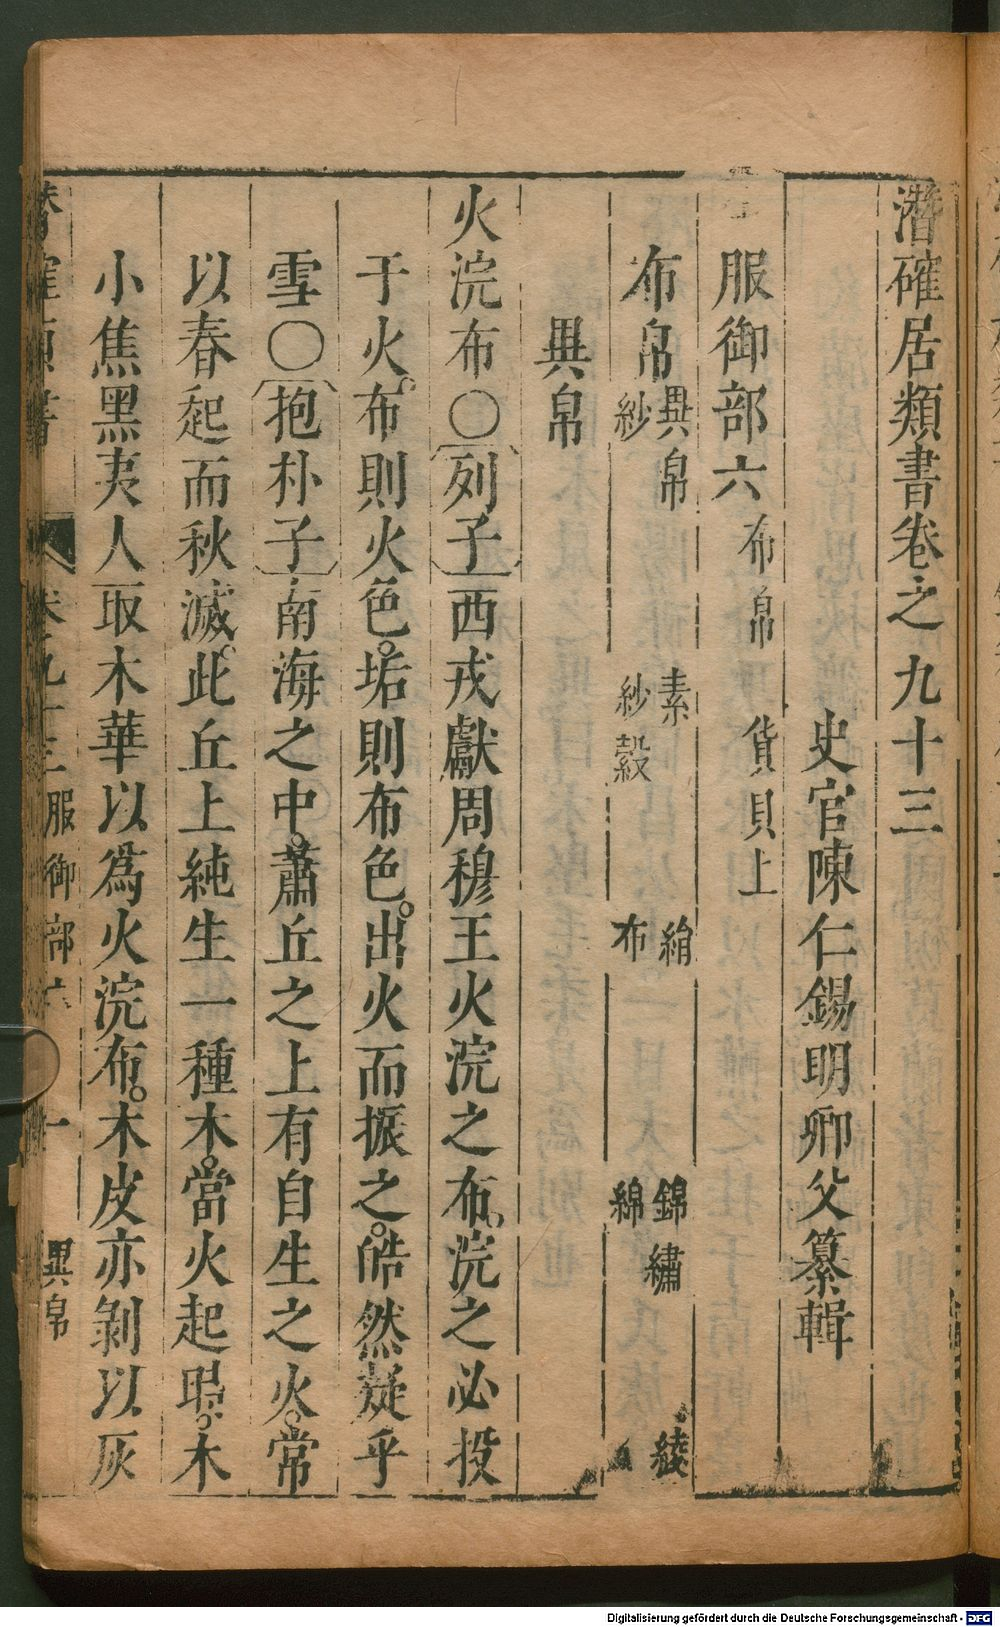 潛確居類書卷之九十三
史官陳仁錫明卿父纂輯
服御部六 布帛 貨貝上
布帛 異帛 素 絹 錦繡 綾
紗 紗縠 布 綿
異帛
火浣布〇列子西戎獻周穆王火浣之布。浣之必投
于火。布則火色。垢則布色。出火而振之。皓然疑乎
雪〇抱朴子南海之中。蕭丘之上有自。生之火。常
以春起而秋滅。此丘上純生一種木。當火起時。木
小焦黑夷人取木華以爲火浣布。木皮亦剝以灰
潛確類書 卷九十三 服御部六 一 異帛
Digitalisierung gefördert durch die Deutsche Forschungsgemeinschaft - DFG